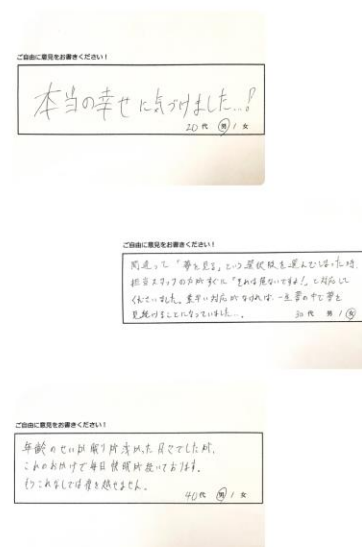 ご自由に意見をお書きください!
本当の幸せに気づけました…!
20代 男 / 女
ご自由に意見をお書きください!
間違って「夢を見る」という選択肢を選んでしまった時、
担当スタッフの方がすぐに「それは見ないですよ!」と対応して
くださいました。素早い対応がなければ、一生雲の中で夢を
見続けることになっていました…。
30代 男 / 女
ご自由に意見をお書きください!
年齢のせいか眠りが浅かった自分でしたが、
これのおかげで毎日快眠が続いております。
もうこれなしでは夜を越せません。
40代 男 / 女